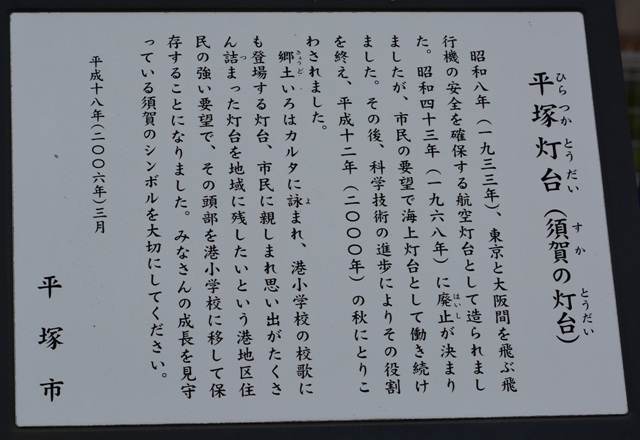 平塚灯台（須賀の灯台）
ひらつかとうだい　すか　とうだい
昭和八年（一九三三年）、東京と大阪間を飛ぶ飛
行機の安全を確保する航空灯台として造られまし
た。昭和四十三年（一九六八年）に廃止が決まり
はいし
ましたが、市民の要望で海上灯台として働き続け
ました。その後、科学技術の進歩によりその役割
を終え、平成十二年（二〇〇〇年）の秋にとりこ
わされました。
郷土いろはカルタに詠まれ、港小学校の校歌に
きょうど　よ
も登場する灯台、市民に親しまれ思い出がたくさ
ん詰まった灯台を地域に残したいという港地区住
つ
民の強い要望で、その頭部を港小学校に移して保
存することになりました。みなさんの成長を見守
っている須賀のシンボルを大切にしてください。
平成十八年（二〇〇六年）三月
平塚市